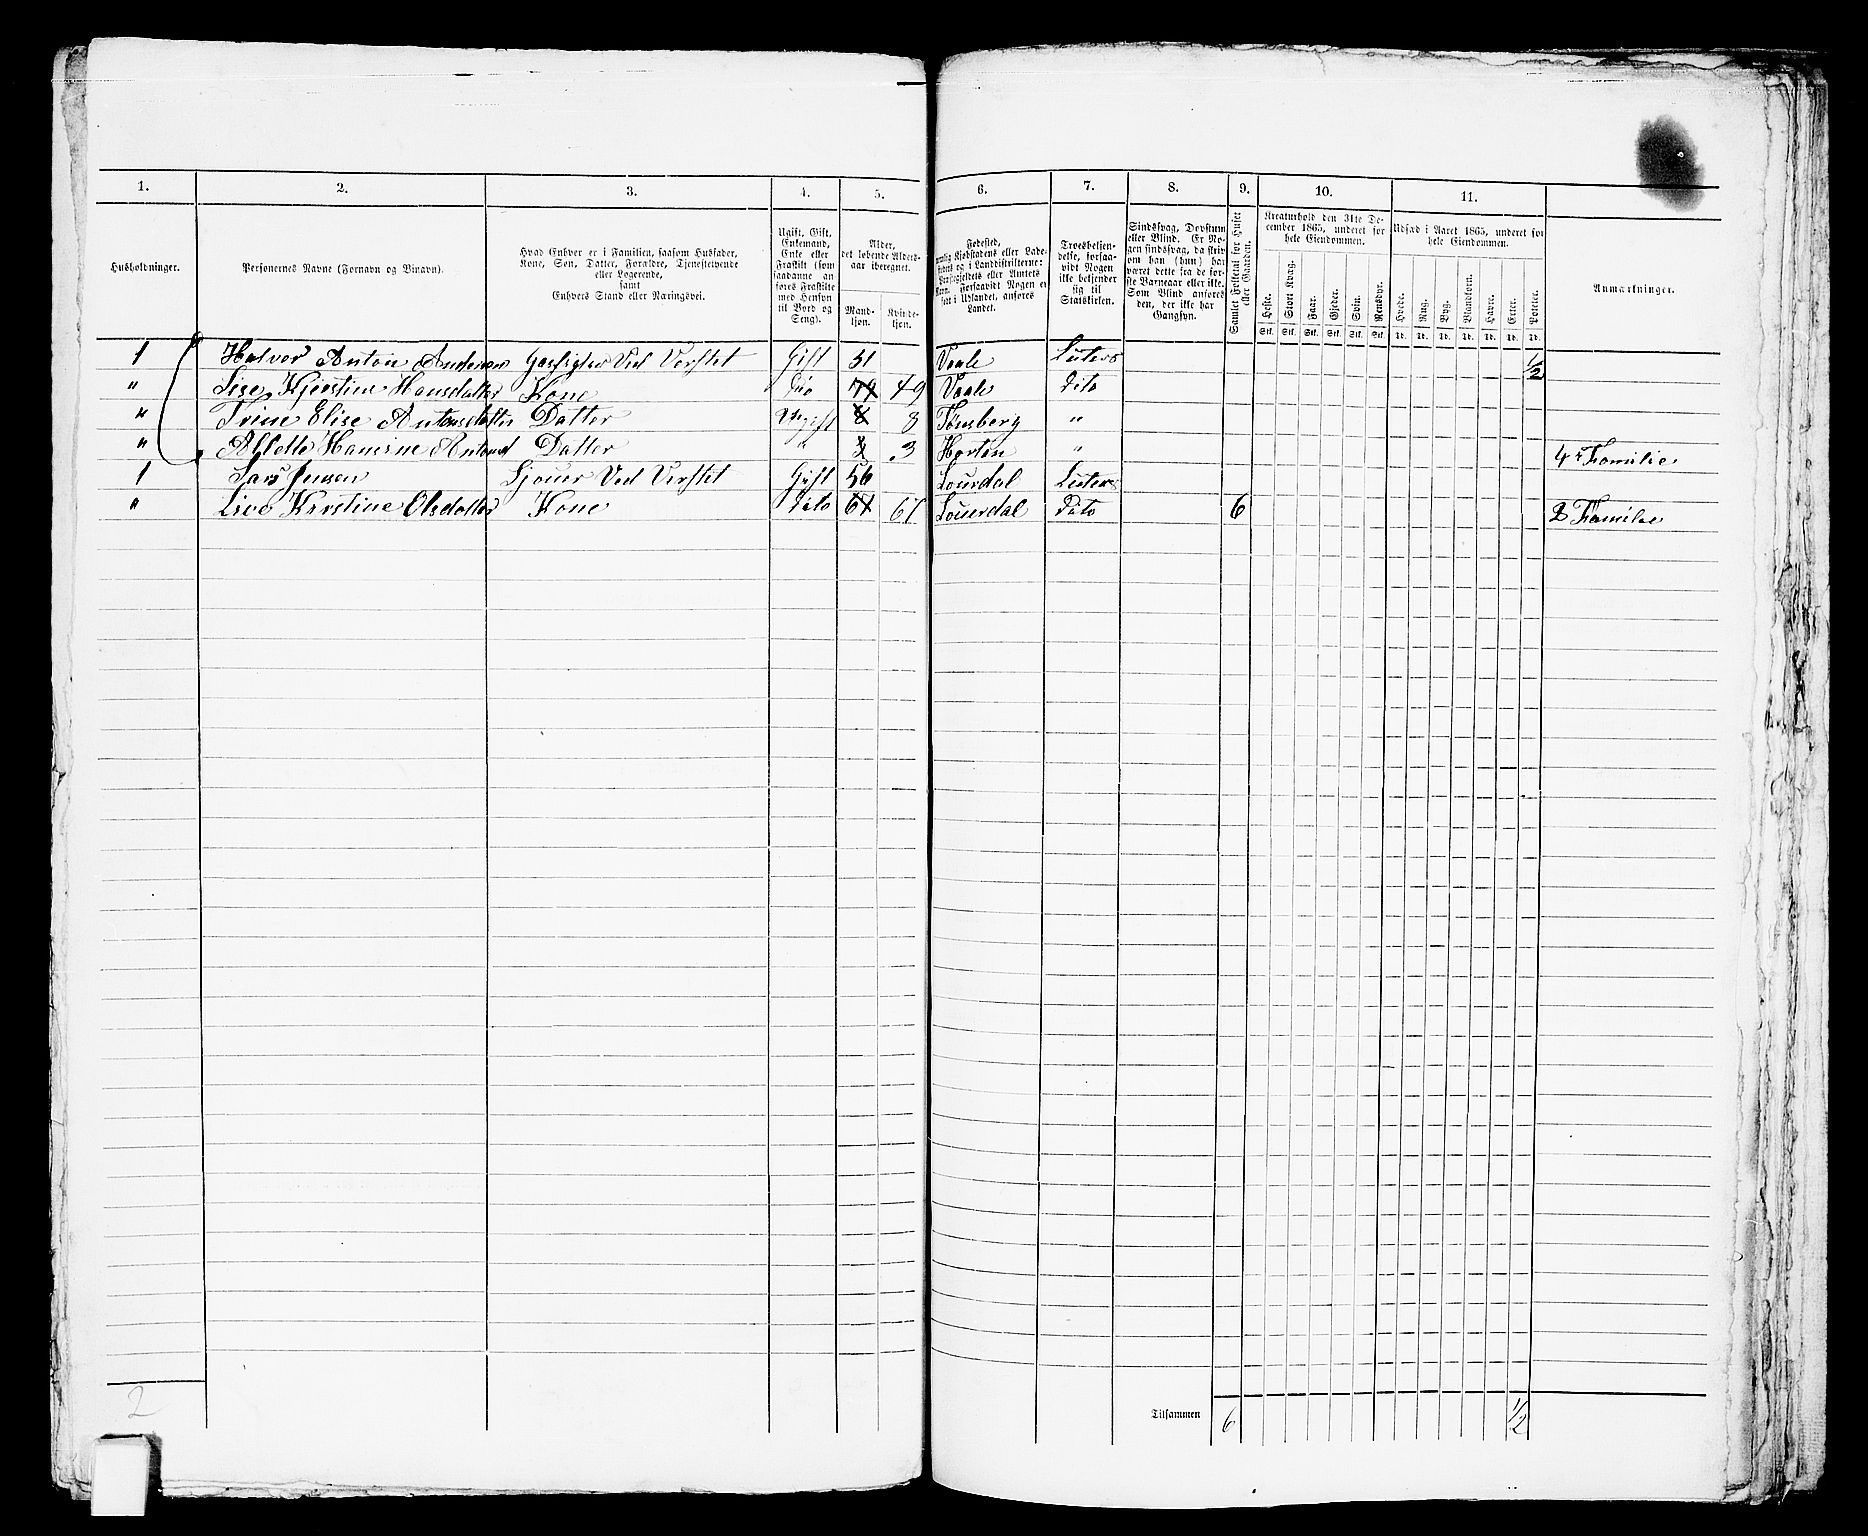 1. 2. 3. 4. 5. 6. 7. 8. 9. 10. 11.
Husholdninger.
Personernes Navne (Fornavn og Binavn).
Hvad Enhver er i Familien, saasom Husfader,
Kone, Søn, Datter, Forældre, Tjenestetyende
eller Logerende,
samt
Enhvers Stand eller Næringsvei.
Ugift, Gift,
Enkemand,
Enke eller
Fraskilt (som
saadanne an-
føres Fraskilte
med Hensyn
til Bord og
Seng).
Alder,
det løbende Alders-
aar iberegnet.
Mand-
kjøn.
Kvinde-
kjøn.
Fødested,
Troesbekjen-
delse, forsaa-
vidt Nogen
ikke bekjender
sig til
Statskirken.
Sindssvag, Døvstum
eller Blind. Er No-
gen sindssvag, da skriv
om han (hun) har
været dette fra de før-
ste Barneaar eller ikke.
Som Blind anføres
den, der ikke har
Gangsyn.
Samlet Folketal for Huset
eller Gaarden.
Kreaturhold den 31te De-
cember 1865, underet for
hele Eiendommen.
Heste. Stort Kvæg. Faar. Gjeder. Svin. Rensdyr.
Stk. Stk. Stk. Stk. Stk. Stk.
Udsæd i Aaret 1865, underet for
hele Eiendommen.
Hvede. Rug. Byg. Blandkorn. Havre. Erter. Poteter.
Td. Td. Td. Td. Td. Td. Td.
Anmærkninger.
1 Halvor Anton Andersen Ved Verstet Gift 51 Vaale Luters 1/2
" Lise Kjerstine Hansdatter Kone Dio 49 Vaale Dito
" Trine Elise Antonsdatter Datter Ugift 8 8 Tønsberg "
" Hansine Antonsd Datter " 3 3 Horten " 4r Familie
1 Lars Jensen Sjouer Ved Verstet Gift 56 Lourdal Luters
" Live Kirstine Olsdatter Kone Dito 67 67 Lourdal Dito 6 2 Familie
2
Tilsammen 6 1/2